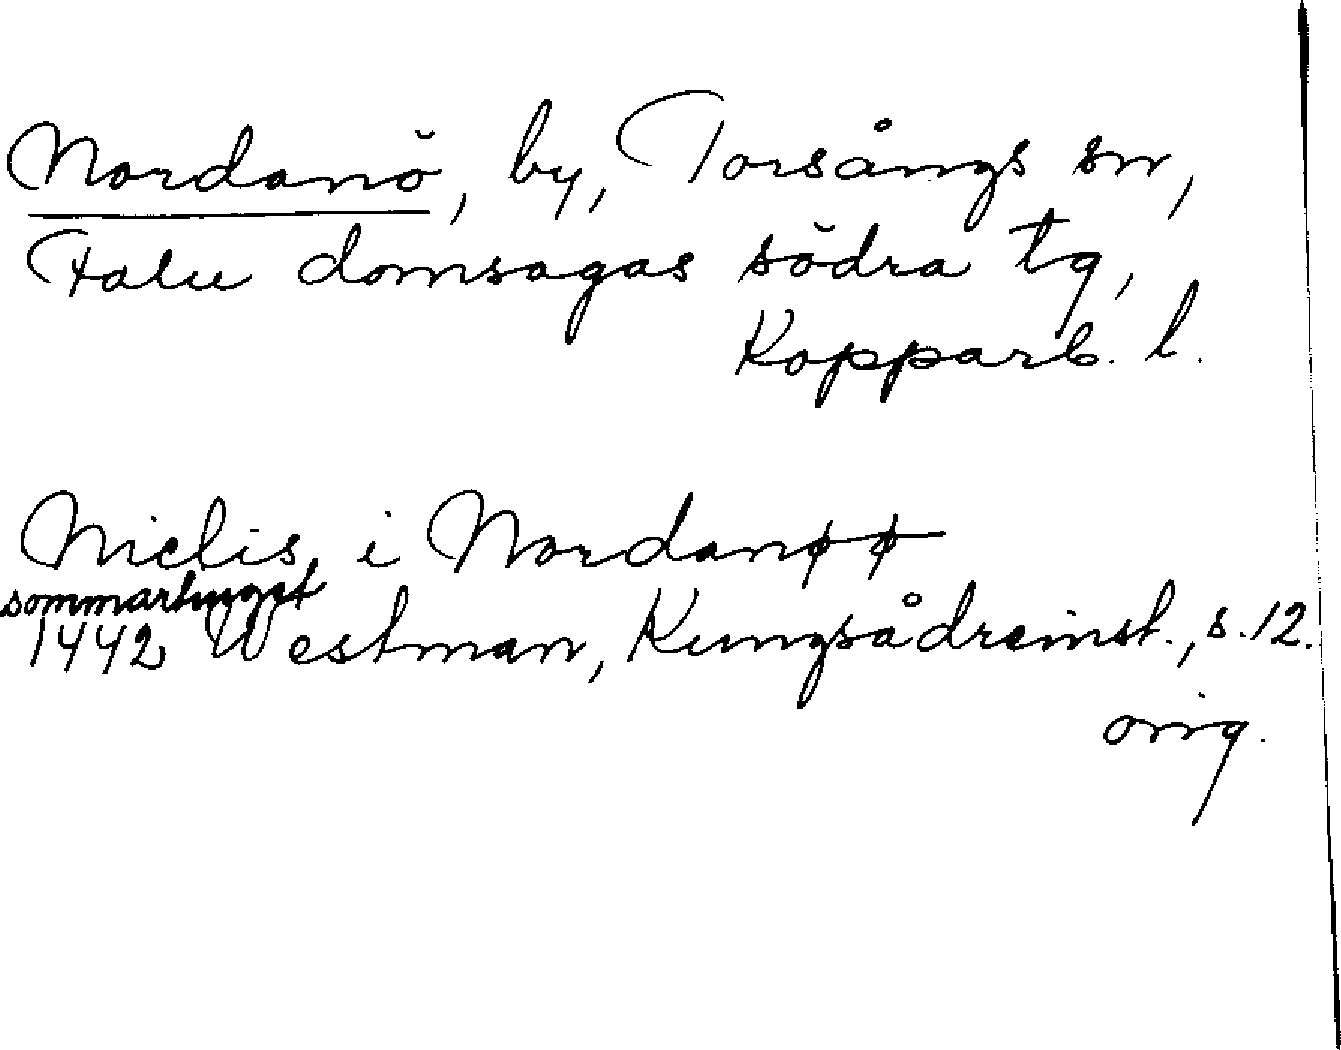 Nordanö, by, Torsångs sn,
Falu domsagas södra tg,
Kopparb. l.
Niclis i Nordanøø
sommartinget
1442 Westman, Kungsådreinst., s. 12.
orig.